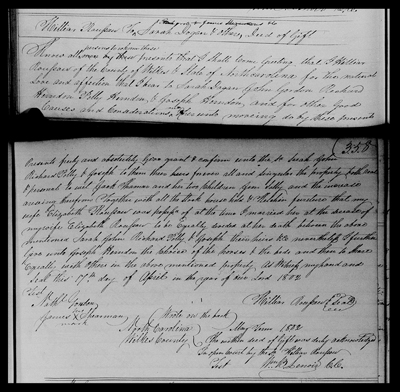 William Rousseau To Sarah Joyner & Others, Deed of Gift
Know all men by these presents that I shall come Greeting, that I William
Rousseau of the County of Wilkes & State of North Carolina for the natural
Love and affection that I bear to Sarah Joyner John Gordon Richard
Herndon Polly Herndon & Joseph Herndon, and for other Good
Causes and Considerations moving do by these presents
(355)
Presents freely and absolutely Give grant & confirm unto the sd Sarah John
Richard Polly & Joseph to them their heirs forever all and singular the property both real
& personal to wit Jack Hannah and her two children and the increase
arising therefrom Together with all the Stock household & Kitchen furniture that my
wife Elizabeth Rousseau was possessd of at the time I married her at the decease of
my wife Elizabeth Rousseau to be Equally divided at her death between the above
mentioned Sarah John Richard Polly & Joseph their heirs &c
Give unto Joseph Herndon the of the horses & the beds and then to share
Equally with others in the above mentioned property. As Witness my hand and
Seal this 17th day of April in the year of our Lord 1802
Test
Nathl Gordon
James Sherman
mark
William Rousseau (Seal)
Wrote on the back
North Carolina
Wilkes County
May Term 1802
The within deed of Gift was duly acknowledged
In open Court by the sd William Rousseau
Test Wm B Lenoir C.C.